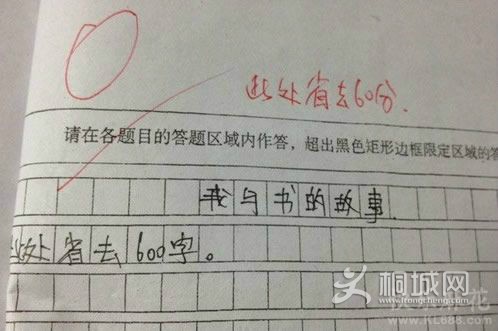 此处省去60分.
请在各题目的答题区域内作答，超出黑色矩形边框限定区域的答
我与书的故事
此处省去600字。
桐城网
www.tongcheng.com
www.KL688.com